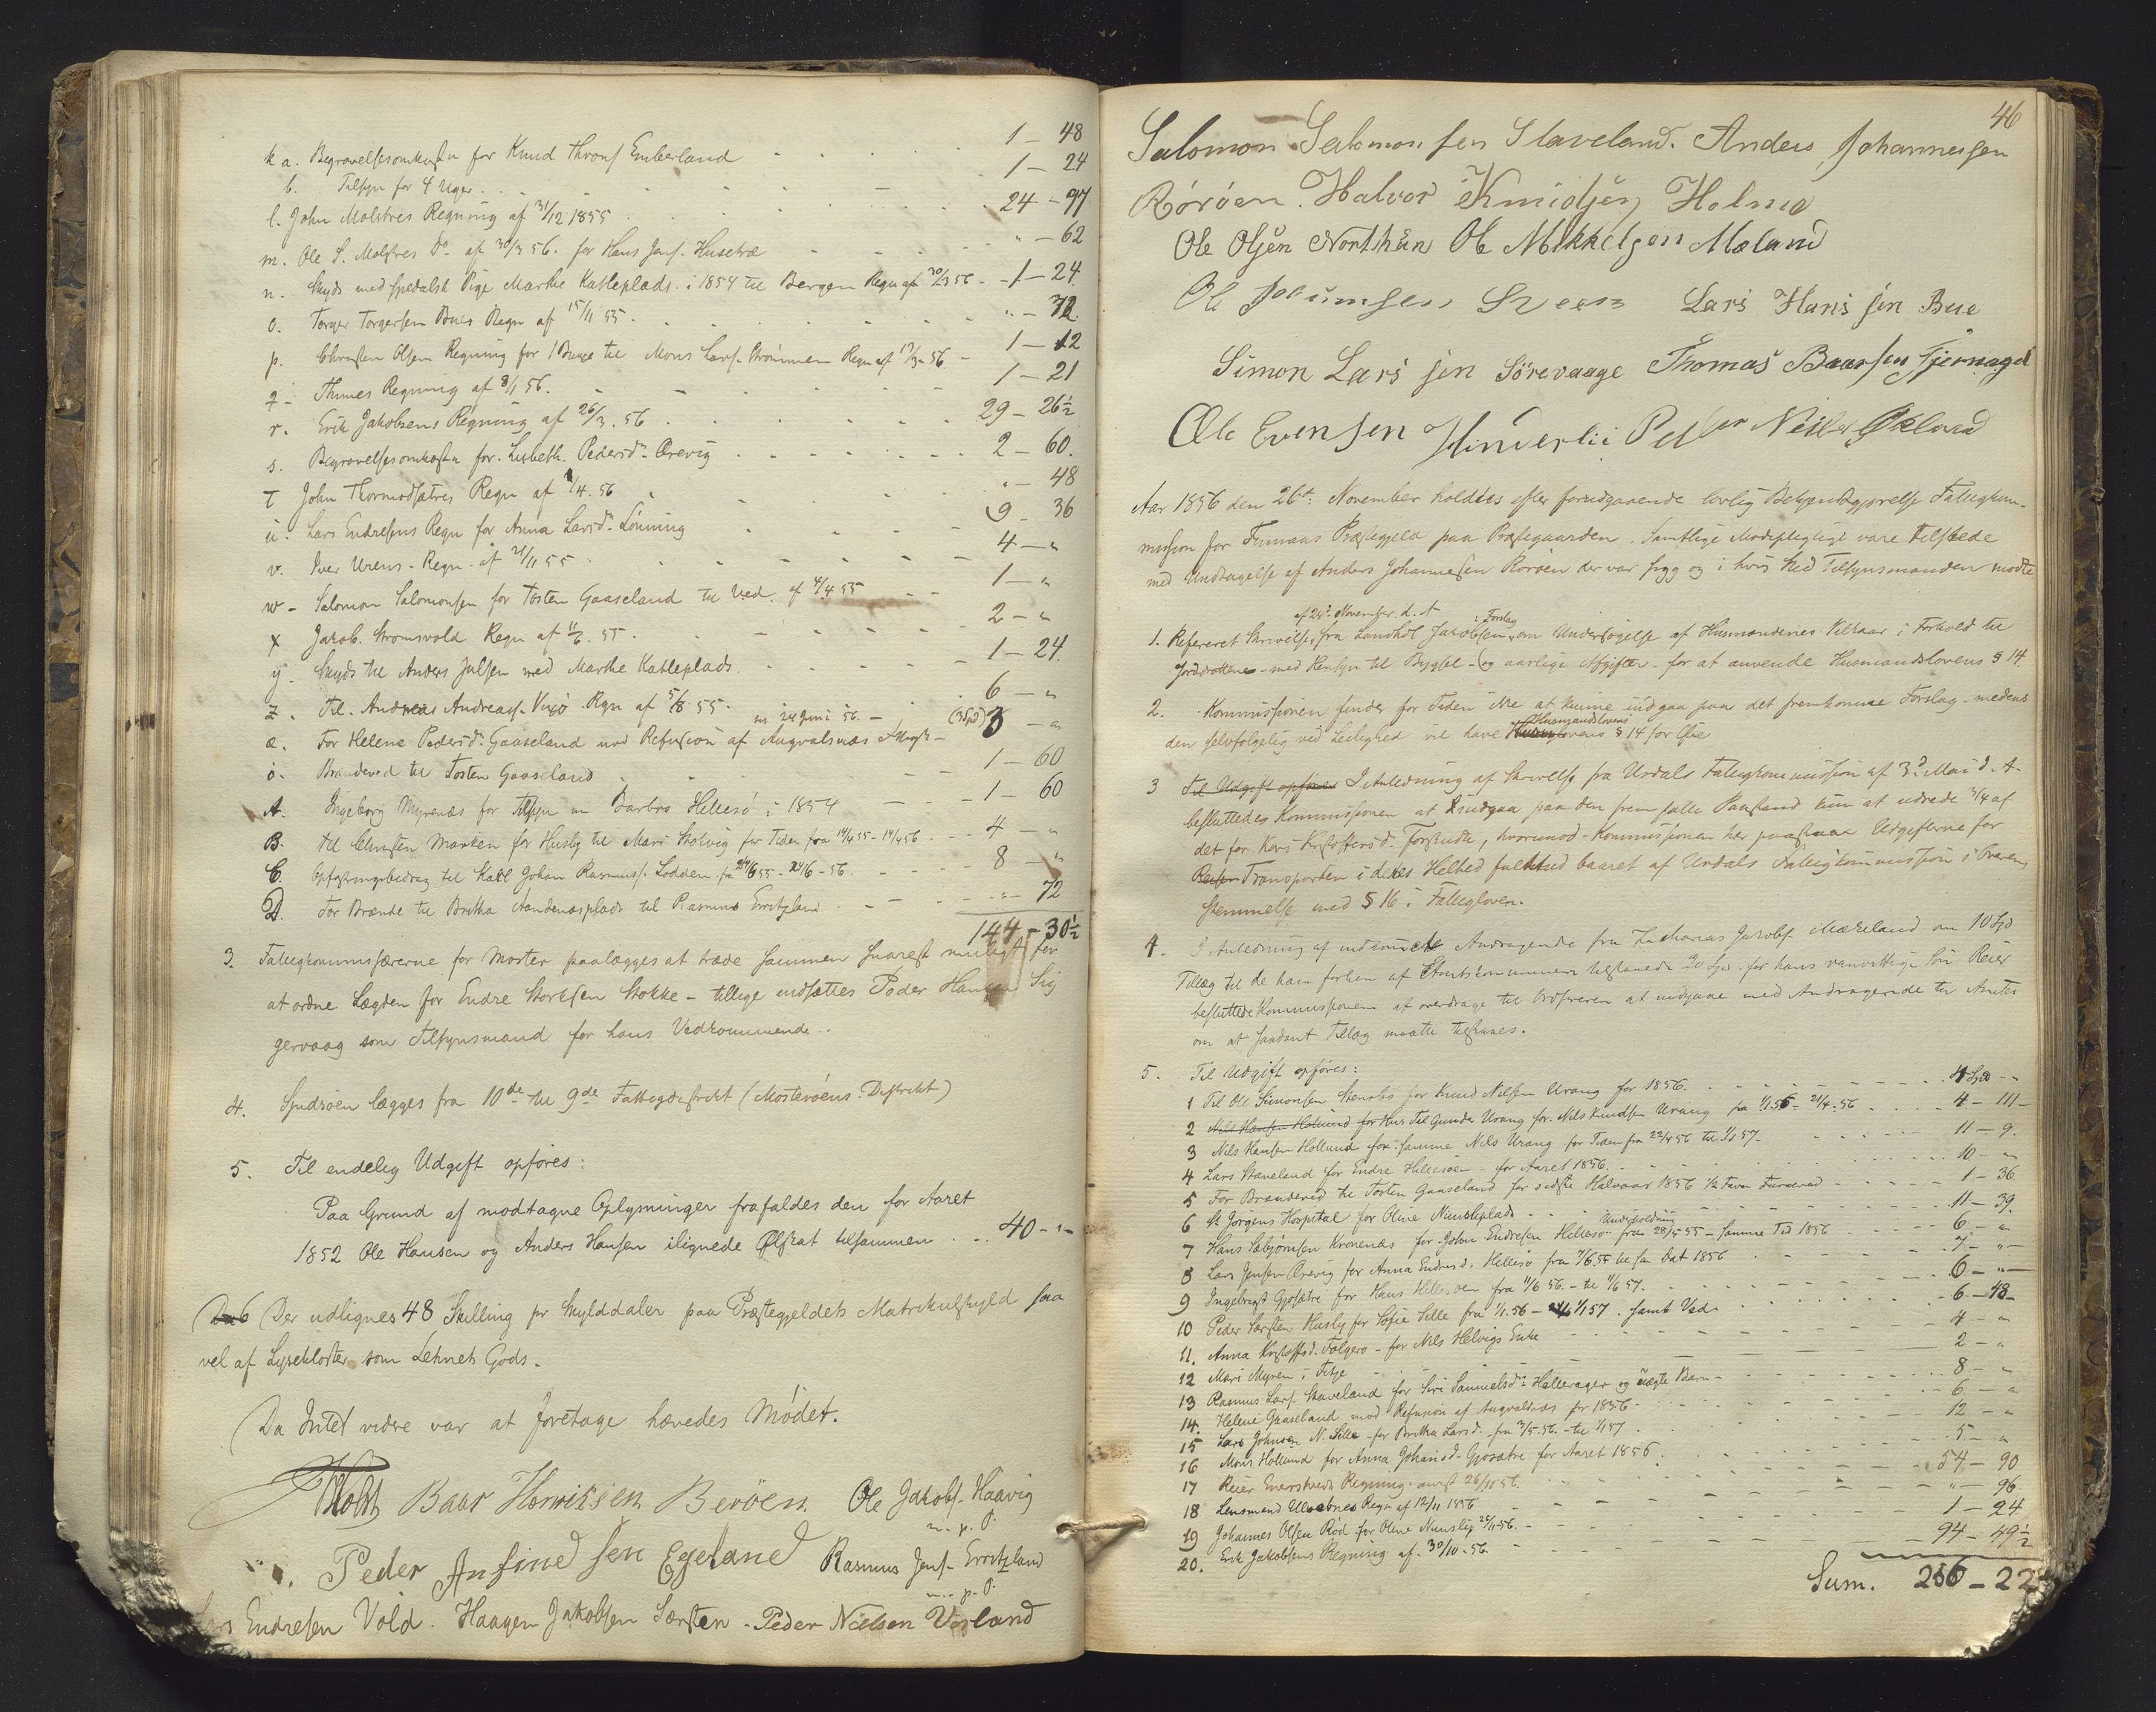 k a. Begravelsesomkostn for Knud Thronss Emberland 1 – 48
b. Tilsyn for 4 Uger 1 – 24
l. John Molstres Regning af 31/12 1855 24 – 97
m. Ole S. Molstres Do. af 30/3 56. for Hans Jans. Husetræ " – 62
n. Skyds med spedalsk Pige Marthe Katleplads i 1854 til Bergen Regn af 30/3 56 1 – 24
o. Torger Torgersen Bues Regn af 15/11 55. " – 72.
p. Christen Olsens Regning for 1 Buxe til Mons Larss. Strömmen Regn af 13/3 56 1 – 12
q. Thunes Regning af 8/1 56. 1 – 21
r. Erik Jakobsens Regning af 26/3. 56 29 – 26½
s. Begravelsesomkostn for Lisbeth Pedersd. Örevig 2 – 60.
t John Thormodsætres Regn af /4. 56 " – 48
u. Lars Endresens Regn for Anna Larsd. Lönning 9 36
v. Iver Urens Regn. af 21/11 55 4 – "
w – Salomon Salomonsen for Tosten Gaaseland til Ved af 4/4 55 1 – "
x Jakob Strömsvold Regn af 11/6. 55. 2 – "
y. Skyds til Anders Julsen med Marthe Katleplads. 1 – 24.
z. Til Andreas Andreass. Vixö Rgn af 5/8 55. 6 – "
æ. For Helene Pedersd. Gaaseland mod Refusion af Augvalsnæs 24 Juni 56. – (3 Spd) 3 – "
ö. Brændeved til Tosten Gaaseland 1 – 60
A. Ingeborg Myrenæs for Tilsyn m Barbro Hellesö i 1854 1 – 60
B. til Christen Marken for Husly til Mari Stolvig for Tiden fra 14/4 55 – 14/4 56 4 – "
C Opfostringsbedrag til Karl Johan Rasmuss. Lodden fra 24/6 55 – 24/6 – 56 8 – "
D. For Brænde til Britha Aandenæsplads til Rasmus Erritzland " – 72
144 – 30½
3. Fattigkommissærerne for Moster paalægges at træde sammen snarest muligt for
at ordne Lægden for Endre Stortsen Stokke – tillige indsættes Peder Hansen Sig
gervaag som Tilsynsmand for hans Vedkommende.
4. Spydsöen lægges fra 10de til 9de Fattigdistrikt (Mosteröens Distrikt)
5. Til endelig Udgift opföres:
Paa Grund af modtagne Oplysninger frafaldes den for Aaret
1852 Ole Hansen og Anders Hansen ilignede Ölskat tilsammen 40 – " –
Da 6 Der udlignes 48 Skilling pr Skylddaler paa Præstegjeldets Matrikulskyld saa
vel af Lysekloster som Lehnets Gods.
Da Intet videre var at foretage hævedes Mödet.
Holst Baar Henriksen Beröen Ole Jakobs. Haavig
m. p. P.
Peder Ansind sen Egeland Rasmus Jens. Erritzland
m. p. P.
Endresen Vold. Haagen Jakobsen Særsten. Peder Nielsen Vorland
46
Salomon Salomonsen Staveland. Anders Johannesen
Röröen. Halvor Knudsen Holme
Ole Olsen Northun Ole Mikkelsen Mæland
Ole Lars Hans sen Bue
Simon Lars sen Sörevaage Thomas Baarsen Tjernagel
Ole Evensen Hinderlii Peder Nils Økland
Aar 1856 den 26de November holdtes efter forudgaaende lovlig Bekjendtgjörelse Fattigkom-
mission for Finnaas Præstegjeld paa Præstegaarden. Samtlige Mödepligtige vare tilstede
med Undtagelse af Anders Johannesen Röröen der var syg og i hvis Sted Tilsynsmanden mödte
af 24de November d. A : Forslag
1. Refereret Skrivelse fra Landhdl Jakobsen om Undersögelse af Husmændenes Vilkaar i Forhold til
Jorddrotterne – med Hensyn til Bygsel – og aarlige Afgifter – for at anvende Husmandslovens § 14.
2. Kommissionen finder for Tiden ikke at kunne indgaa paa det fremkomne Forslag – medens
den selvfölgelig ved Leilighed vil have Husmandslovens § 14 for Öie
3 Til Udgift opföres I Anledning af Skrivelse fra Urdals Fattigkommission af 3die Mai d. A.
besluttedes Kommissionen at indgaa paa den fremsatte Paastand kun at udrede 3/4 af
det for Kari Kristofersd. Forskudte, hvorimod Kommissionen her paastaar Udgifterne for
Reisen Transporten i deres Helhed fuldtud baaret af Urdals Fattigkommission i Overens-
stemmelse med § 16 i Fattigloven.
4. I Anledning af indkomne Andragende fra Zacharias Jakobs. Mækeland om 10 Spd
Tillæg til de ham forhen af Amtskommunen tilstaaede 20 Spd for hans vanvittige Sön Reier
besluttede Kommissionen at overdrage til Ordföreren at indgaae med Andragende til Amtet
om at saadant Tillæg maatte tilstaaes.
5. Til Udgift opföres:
1 Til Ole Simonsen Stensbö for Knud Nilssen Urang for 1856. 4 Spd – "
2 Nils Hansen Hollund for Hus til Gunder Urang for Nils Knudsen Urang fra 1/1 56 – 21/4 56 4 – 111 –
3 Nils Hansen Hollund for samme Nils Urang for Tiden fra 22/4 56 til 1/1 57 – 11 – 9.
4 Lars Staveland for Endre Hillesöen – for Aaret 1856. 10 – "
5 For Brændeved til Tosten Gaaseland for sidste Halvaar 1856 ½ Favn Fureved 1 – 36
6 St. Jörgens Hospital for Oline Nimsliplads 11 – 39.
7 Hans Sæbjörnsen Kronenæs for John Endresen Hillesö Underholdning fra 28/5 55 – samme Tid 1856 6 – "
8 Lars Jensen Örevig for Anna Endresd. Hillesö fra 1/6 55 til sm Dat 1856 7 – "
9 Ingebrigt Gjösætre for Hans Hillesöen fra 11/6 56 – til 11/6 57. 6 – "
10 Peder Særsten Husly for Sofie Selle fra 1/1 56 – 1/1 57. samt Ved 6 – 48 –
11. Anna Kristoffsd. Folgerö – for Nils Helvigs Enke 4 – "
12 Mari Myren i Fitje 2 – "
13 Rasmus Larss. Staveland for Siri Samuelsd. Hallerager og uægte Barn – 8 – "
14. Helene Gaaseland mod Refusion af Augvaldnæs for 1856 – 6 – "
15 Lars Johnsen N. Selle for Britha Larsd. fra 3/5 56 – til 1/1 57 12 – "
16 Mons Hollund for Anna Johansd. Gjösætre for Aaret 1856. 5 – "
17 Reier Enerstvedts Regning anvist 26/11 56. 54 – 90
18 Lensmand Ulvebnes Regn af 12/11 1856 " – 96
19 Johannes Olsen Röd for Oline Nimslig 25/11 56. – 1 – 24
20. Erik Jakobsens Regning af 30/10 56. 94 – 49½
Sum. 256 – 22